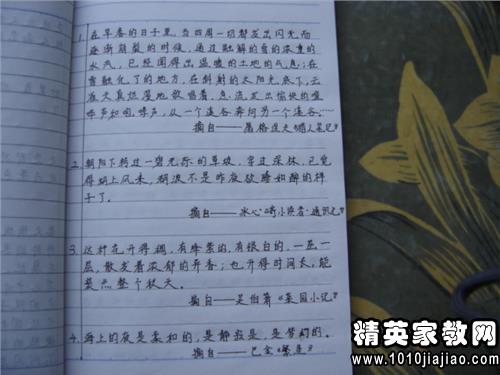 1. 在早春的日子里，当四周一切都发出闪光而
逐渐崩裂的时候，通过融解的雪的浓重的
水汽，已经闻得出温暖的土地的气息；在
雪融化了的地方，在斜射的太阳光底下，云
雀天真烂漫地歌唱着，急流发出愉快的喧
哗声和咆哮声，从一个溪谷奔向另一个溪谷……
摘自——屠格涅夫《猎人笔记》
2. 朝阳下转过一碧无际的草坡，穿过深林，已觉
得湖上风来，湖波不是昨夜欲睡如醉的样
子了。
摘自——冰心《寄小读者·通讯七》
3. 这种花开得稠，有绛紫的，有银白的，一层一
层，散发着浓郁的异香；也开得时间长，能
装点整个秋天。
摘自——吴伯箫《菜园小记》
4. 海上的夜是柔和的，是静寂的，是梦幻的。
摘自——巴金《繁星》
精英家教网
www.1010jiajiao.com